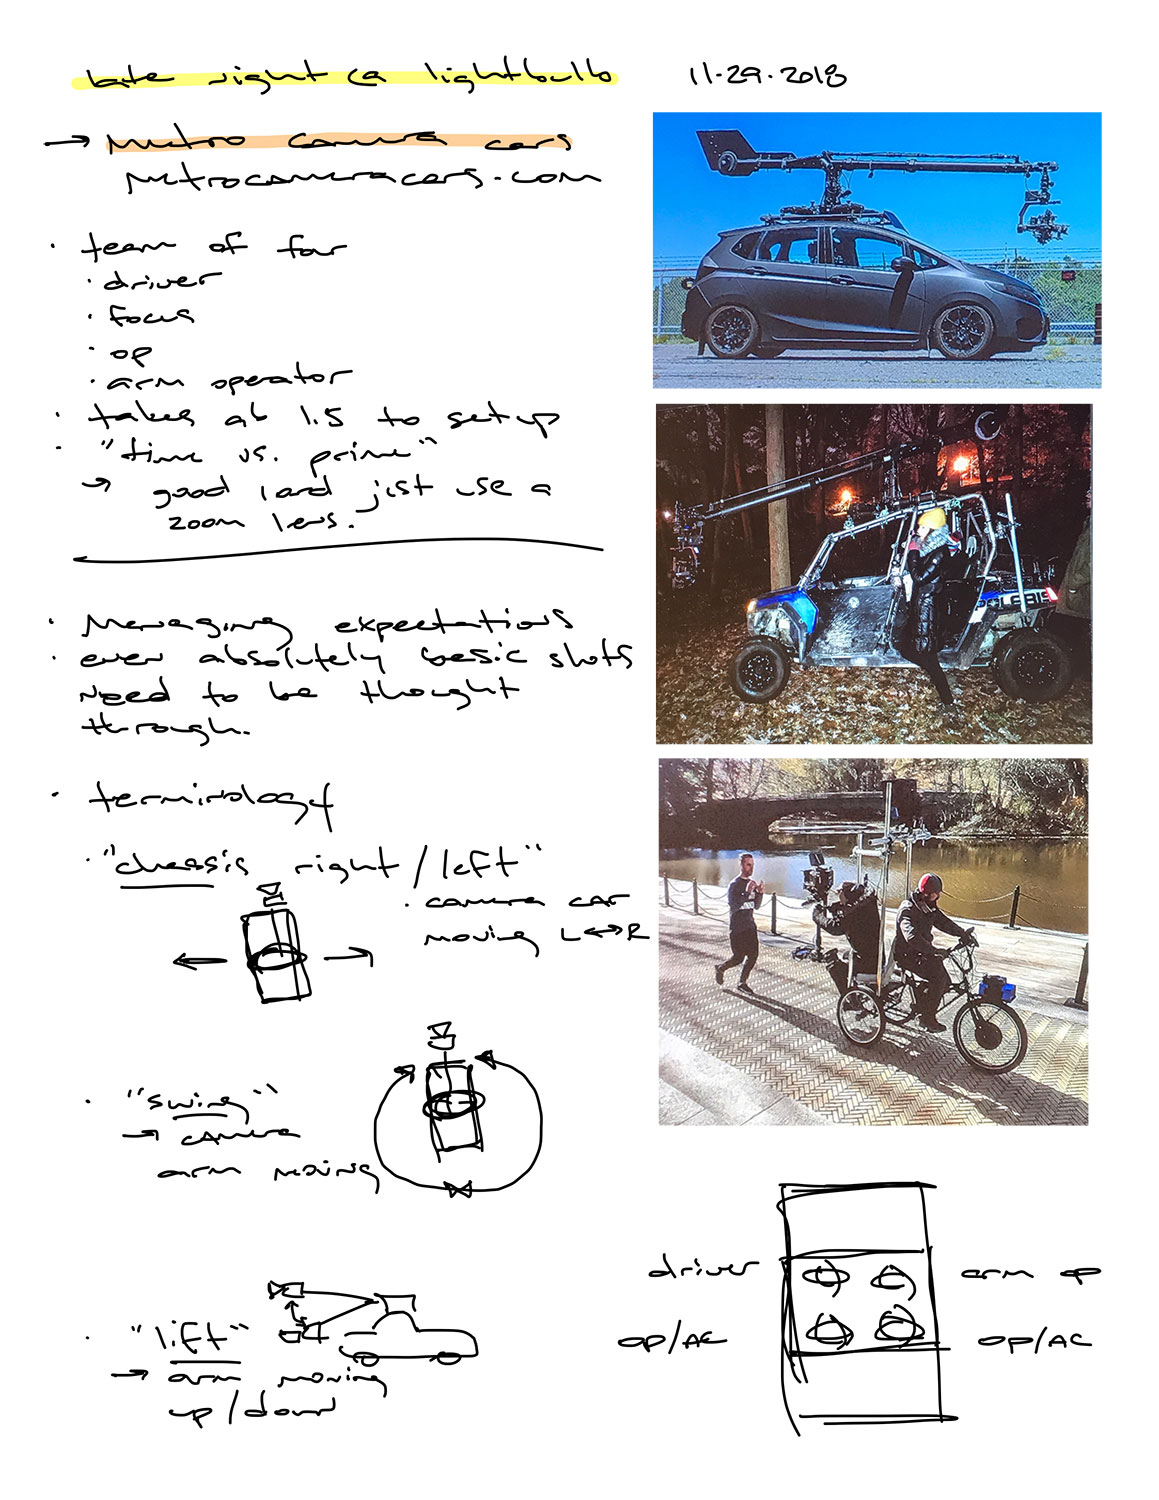 late night @ lightbulb
11-29-2018
→ Metro camera cars
metrocameracars.com
· team of four
· driver
· focus
· op
· arm operator
· takes ab 1.5 to setup
· "time vs. prime"
→ good land just use a
zoom lens.
· Managing expectations
· even absolutely basic shots
need to be thought
through.
· terminology
· "chassis right / left"
· camera car
moving L↔R
· "swing"
→ camera
arm moving
· "lift"
→ arm moving
up / down
driver
arm op
op/AC
op/AC
POLARIS